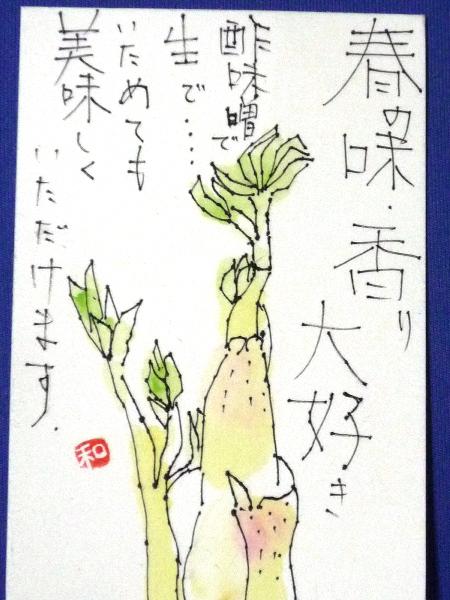 春の味・香り
大好き
酢味噌で
生で…
いためても
美味しく
いただけます.
和